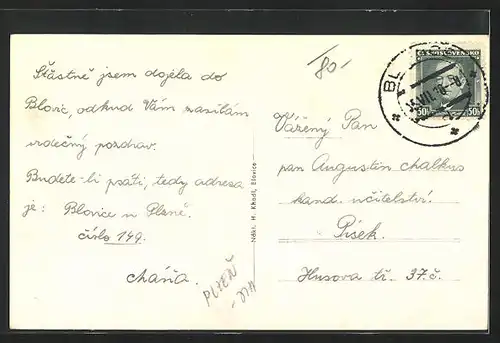 Šťastně jsem dojela do
Blovic, odkud Vám zasílám
srdečný pozdrav.
Budete-li psáti, tedy adresa
je: Blovice u Plzně.
číslo 149.
Máňa.
80-
PLZEŇ
Nákl. H. Khodl, Blovice
ČESKOSLOVENSKO
50
50
BL
Vážený Pan
pan Augustin Chalkus
kand. učitelství
Písek.
Husova tř. 37.č.